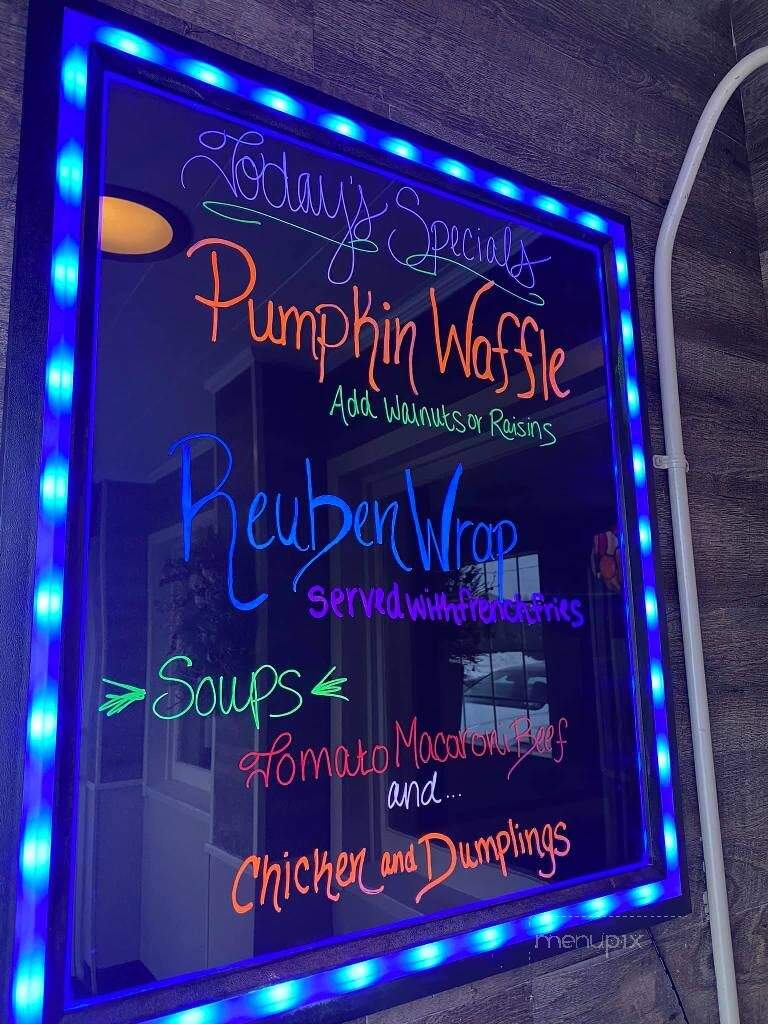 Today's Specials
Pumpkin Waffle
Add Walnuts or Raisins
Reuben Wrap
served with french fries
Soups
Tomato Macaroni Beef
and...
Chicken and Dumplings
menupix